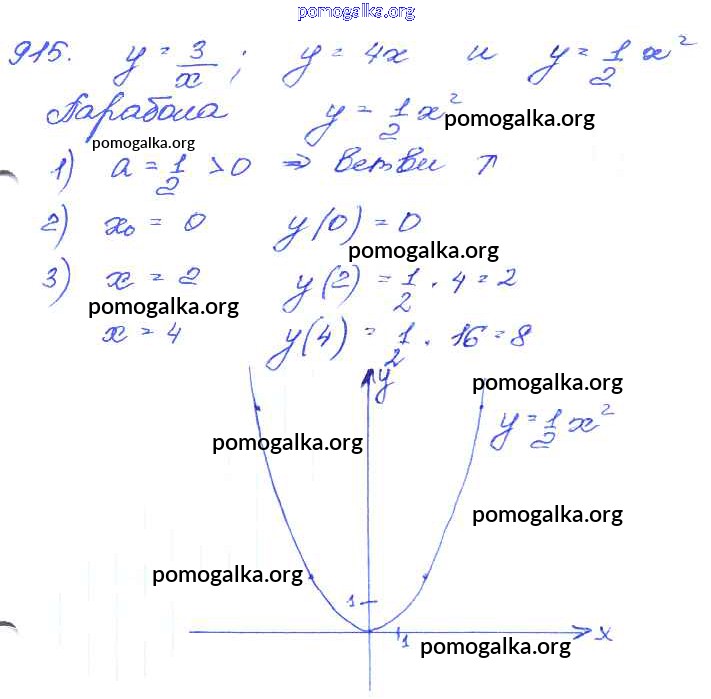 pomogalka.org
915. y = 3/x ; y = 4x и y = 1/2 x²
Парабола y = 1/2 x² pomogalka.org
pomogalka.org
1) a = 1/2 > 0 ⇒ ветви ↑
2) x₀ = 0 y(0) = 0
pomogalka.org
3) x = 2 y(2) = 1/2 · 4 = 2
pomogalka.org
x = 4 y(4) = 1/2 · 16 = 8
y
pomogalka.org
y = 1/2 x²
pomogalka.org
pomogalka.org
pomogalka.org
1
1 x
pomogalka.org